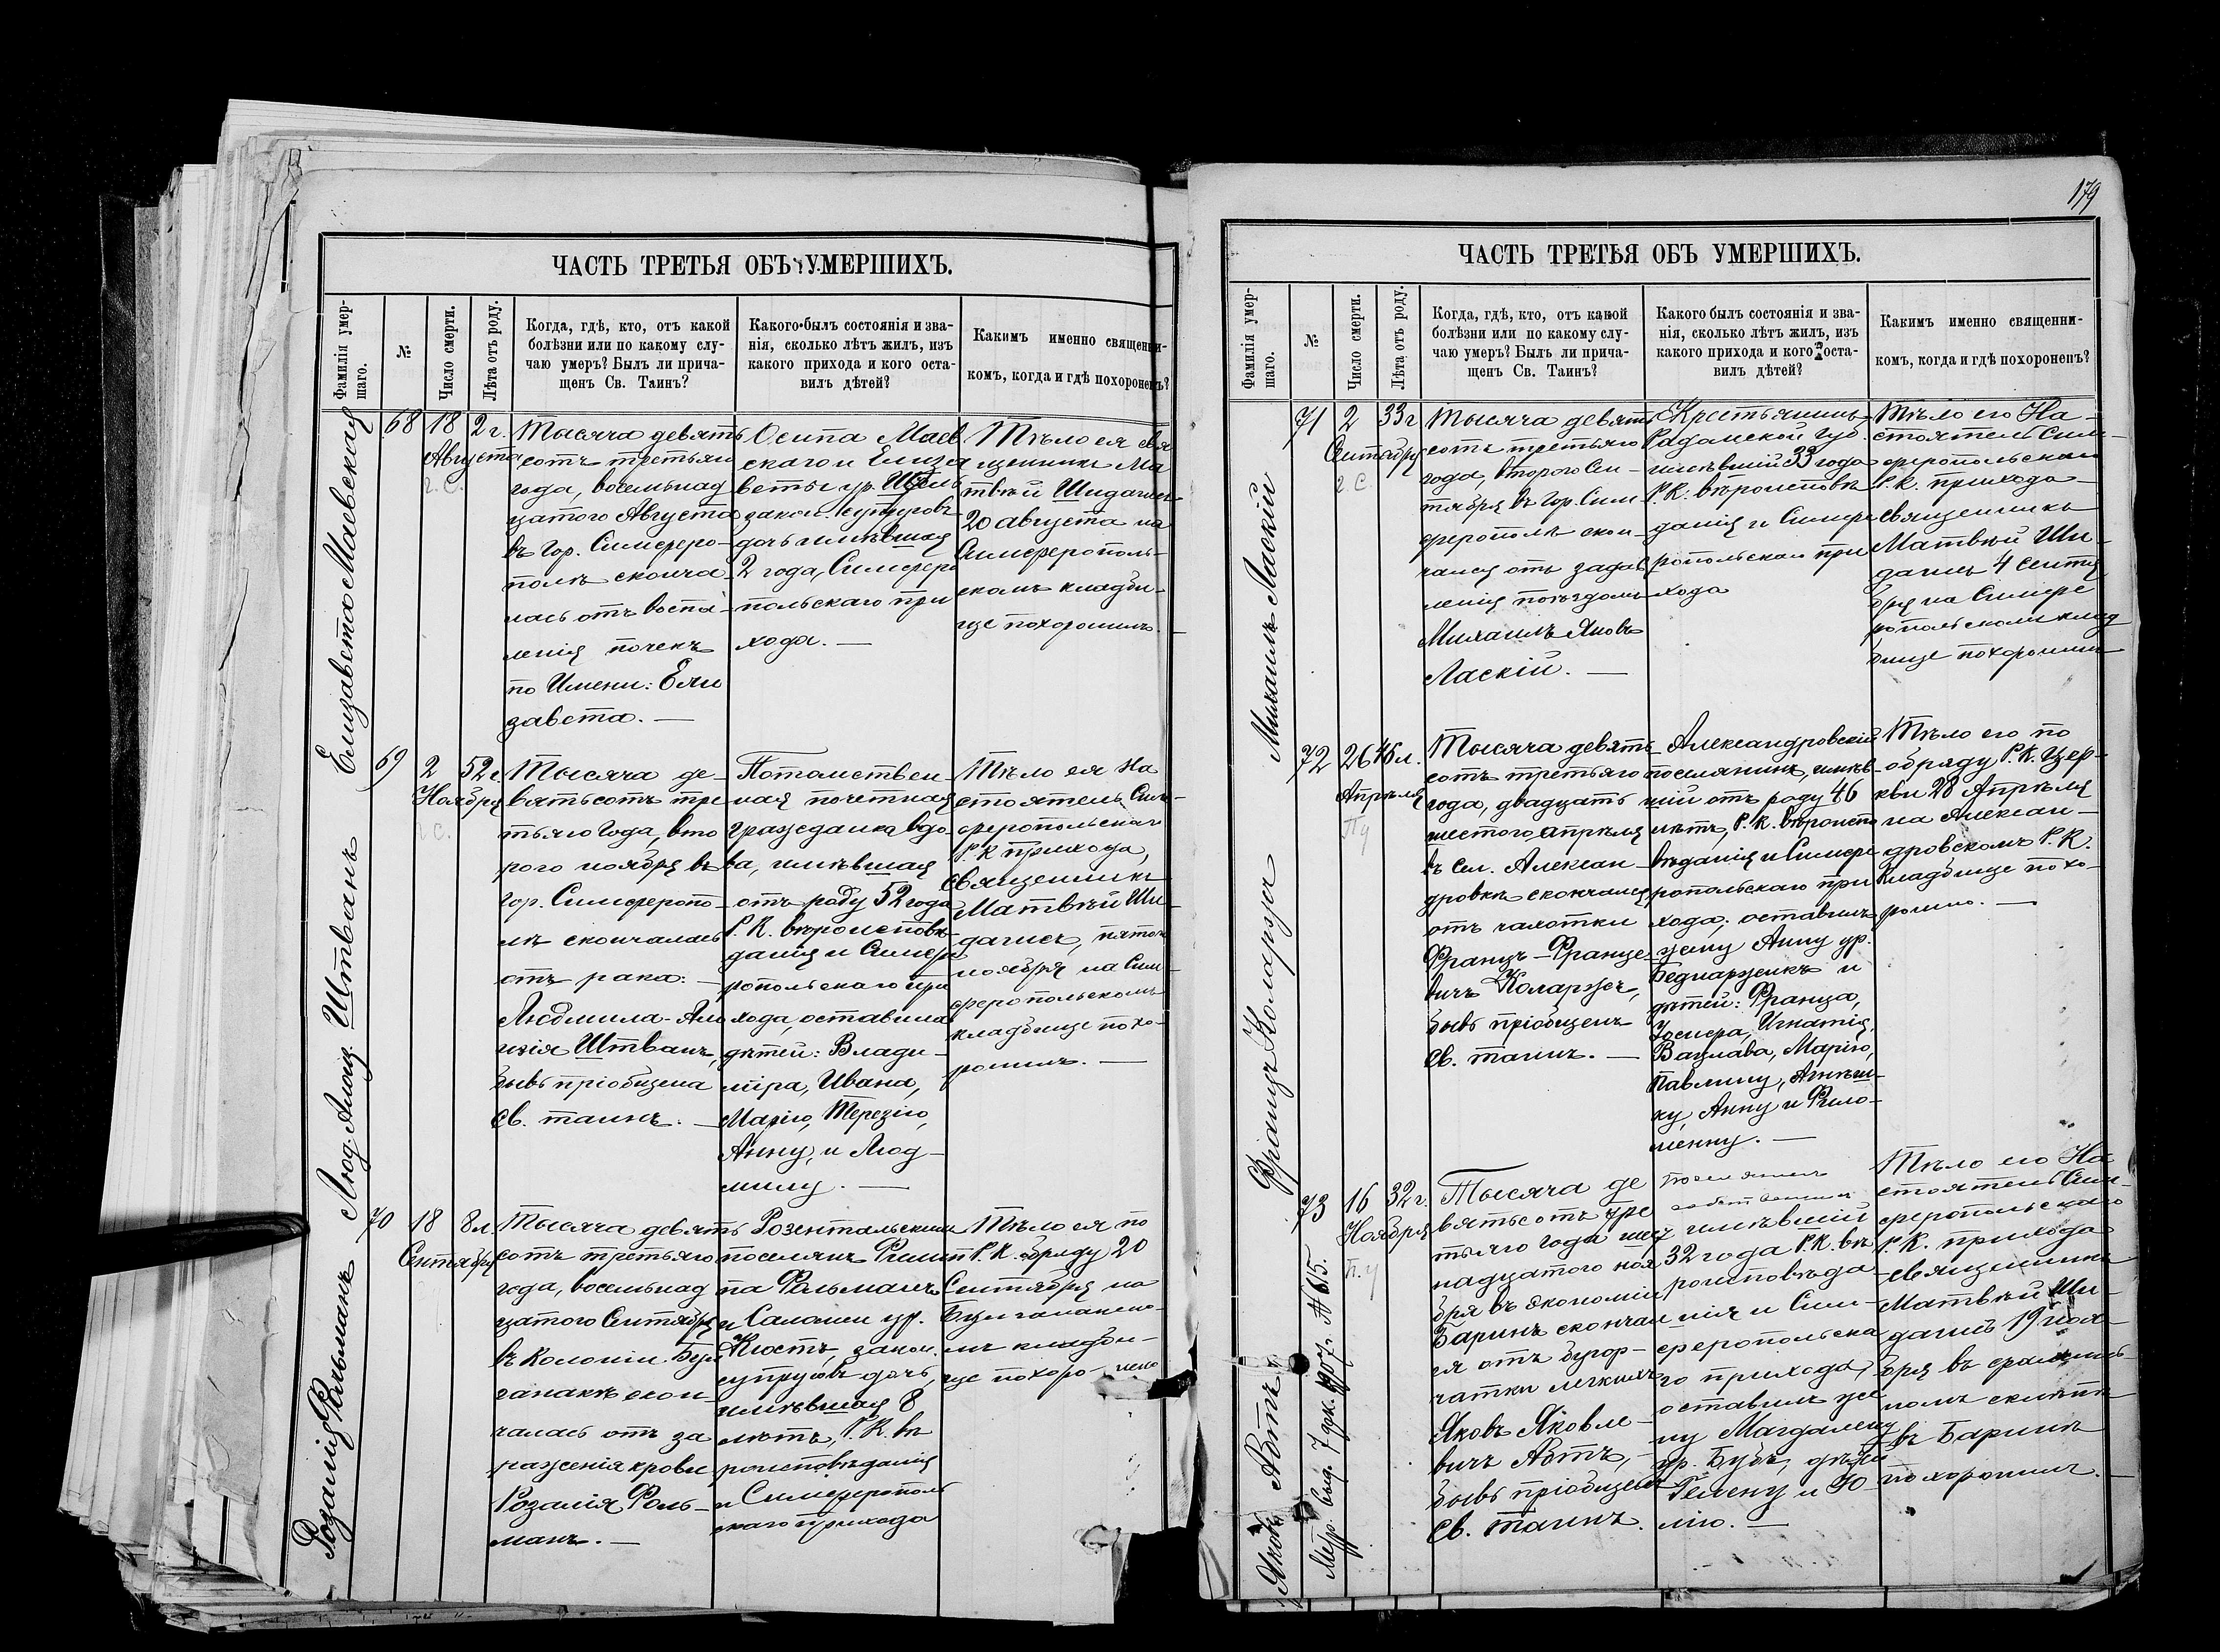 ЧАСТЬ ТРЕТЬЯ ОБЪ УМЕРШИХЪ.
Фамилія умер-
шаго.
№
Число смерти.
Лѣта отъ роду.
Когда, гдѣ, кто, отъ какой
болѣзни или по какому слу-
чаю умеръ? Былъ ли прича-
щенъ Св. Таинъ?
Какого былъ состоянія и зва-
нія, сколько лѣтъ жилъ, изъ
какого прихода и кого оста-
вилъ дѣтей?
Какимъ именно священни-
комъ, когда и гдѣ похороненъ?
Елизавета Маевская
68
18
Августа
г. с.
2 г.
Тысяча девять
сотъ третьяго
года, восемьнад
цатого Августа
въ гор. Симферо-
полѣ сконча-
лась отъ воспа-
ленія почекъ
по Имени: Ели
завета. —
Осипа Маев
скаго и Елиза
веты ур.
закон. супруговъ
дочь имѣвшая
2 года, Симферо
польскаго при
хода. —
Тѣло ея свя
щенникъ Ма
твѣй Шидагисъ
20 августа на
Симферополь-
скомъ кладби-
ще похоронилъ. —
Люд. Алоиз. Штванъ
69
2
Ноября
г. с.
52 г.
Тысяча де-
вятьсотъ тре
тьяго года, вто
рого ноября въ
гор. Симферопо-
лѣ скончалась
отъ рака: —
Людмила-Ало
изія Штванъ,
бывъ пріобщена
св. таинъ. —
Потомствен-
ная почетная
гражданка вдо
ва, имѣвшая
отъ роду 52 года
Р. К. вѣроисповѣ-
данія и Симфе
ропольскаго при
хода, оставила
дѣтей: Влади-
міра, Ивана,
Марію, Терезію,
Анну, и Люд-
милу. —
Тѣло ея На
стоятель Сим-
феропольскаго
Р. К прихода,
священникъ
Матвѣй Ши-
дагисъ, пятого
ноября на Сим-
феропольскомъ
кладбище похо-
ронилъ. —
Розалія Фольманъ
70
18
Сентября
8 л.
Тысяча девять
сотъ третьяго
года, восемьнад
цатого Сентября
въ колоніи Бул
ганакъ скон-
чалась отъ за
раженія крови
Розалія Фоль-
манъ. —
Розентальскихъ
поселянъ Филип
па Фольманъ
и Саломеи ур.
Кюстъ, закон.
супруговъ дочь,
имѣвшая 8
лѣтъ, Р. К. вѣ
роисповѣданія
и Симферополь
скаго прихода
Тѣло ея по
Р. К. обряду 20
Сентября на
Булганакско-
мъ кладби-
ще похоро-нено
179
ЧАСТЬ ТРЕТЬЯ ОБЪ УМЕРШИХЪ.
Фамилія умер-
шаго.
№
Число смерти.
Лѣта отъ роду.
Когда, гдѣ, кто, отъ какой
болѣзни или по какому слу-
чаю умеръ? Былъ ли прича-
щенъ Св. Таинъ?
Какого былъ состоянія и зва-
нія, сколько лѣтъ жилъ, изъ
какого прихода и кого оста-
вилъ дѣтей?
Какимъ именно священни-
комъ, когда и гдѣ похороненъ?
Михаилъ Ласкій
71
2
Сентября
г. с.
33 г
Тысяча девять
сотъ третьяго
года, второго Сен-
тября въ гор. Сим
ферополѣ скон-
чался отъ задав
ленія поѣздомъ
Михаилъ Яковъ
Ласкій. —
Крестьянинъ
Радомской губ.
имѣвшій 33 года
Р. К. вѣроисповѣ
данія и Симфе
ропольскаго при
хода
Тѣло его На-
стоятель Сим-
феропольскаго
Р. К. прихода
священникъ
Матвѣй Ши-
дагисъ 4 Сентя
бря на Симфе
ропольскомъ клад
бище похоронилъ
Францъ Коларжъ
72
26
Апрѣля
46 л.
Тысяча девять-
сотъ третьяго
года, двадцать
шестого апрѣля
въ сел. Алексан-
дровкѣ скончался
отъ чахотки
Францъ-Францe-
вичъ Коларжъ,
бывъ пріобщенъ
св. таинъ. —
Александровскій
поселянинъ, имѣв-
шій отъ роду 46
лѣтъ, Р. К. вѣроиспо
вѣданія и Симфе
ропольскаго при
хода; оставилъ
жену Анну ур.
Беднаржикъ и
дѣтей: Франца,
Іосифа, Игнатія,
Вацлава, Марію,
Павлину, Агнѣш-
ку, Анну и Фило-
менну. —
Тѣло его по
обряду Р. К. цер-
кви 28 Апрѣля
на Алексан-
дровскомъ Р. К.
кладбище похо-
ронено. —
Яковъ Аотъ
73
16
Ноября
П. У
32 г.
Тысяча де
вятьсотъ тре
тьяго года шест
надцатого ноя
бря въ экономіи
Баринъ скончал
ся отъ бугор-
чатки легкихъ
Яковъ Яковле-
вичъ Аотъ, —
бывъ пріобщенъ
св. таинъ.
поселянинъ
имѣвшій
32 года Р. К. вѣ
роисповѣда
нія и Сим-
феропольска
го прихода,
оставилъ же
ну Магдалену
ур. Бубъ, дѣтей
Гелену и Ю-
лію. —
Тѣло его На
стоятель Сим-
феропольскаго
Р. К. прихода
священникъ
Матвѣй Ши-
дагисъ 19 ноя-
бря въ
номъ склѣпѣ
въ Баринѣ
похоронилъ. —